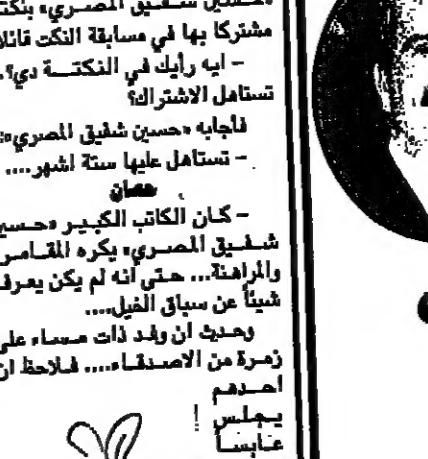 «حسين شفيق المصري» بنكتة
مشتركا بها في مسابقة النكت قائلا
– ايه رأيك في النكتة دي؟.
تستاهل الاشتراك؟
فأجابه «حسين شفيق المصري»:
– تستاهل عليها ستة اشهر....
حصان
– كان الكاتب الكبير «حسين
شفيق المصري» يكره المقامرة
والمراهنة... حتى انه لم يكن يعرف
شيئاً عن سباق الخيل....
وحديث ان وفد ذات مساء على
زمرة من الاصدقاء.... فلاحظ ان
احدهم
يجلس !
عابساً